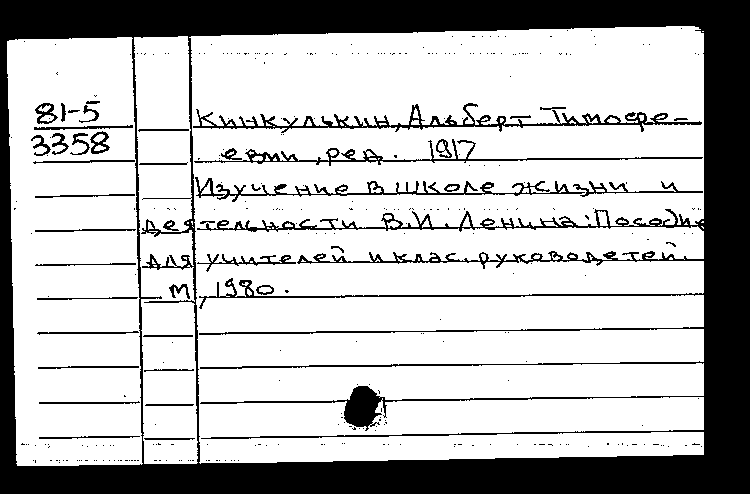 81-5
3358
Кинкулькин, Альберт Тимофе-
евми, ред. 1917
Изучение в школе жизни и
деятельности В.И. Ленина: Пособие
для учителей и клас. руководетей.
М, 1980.